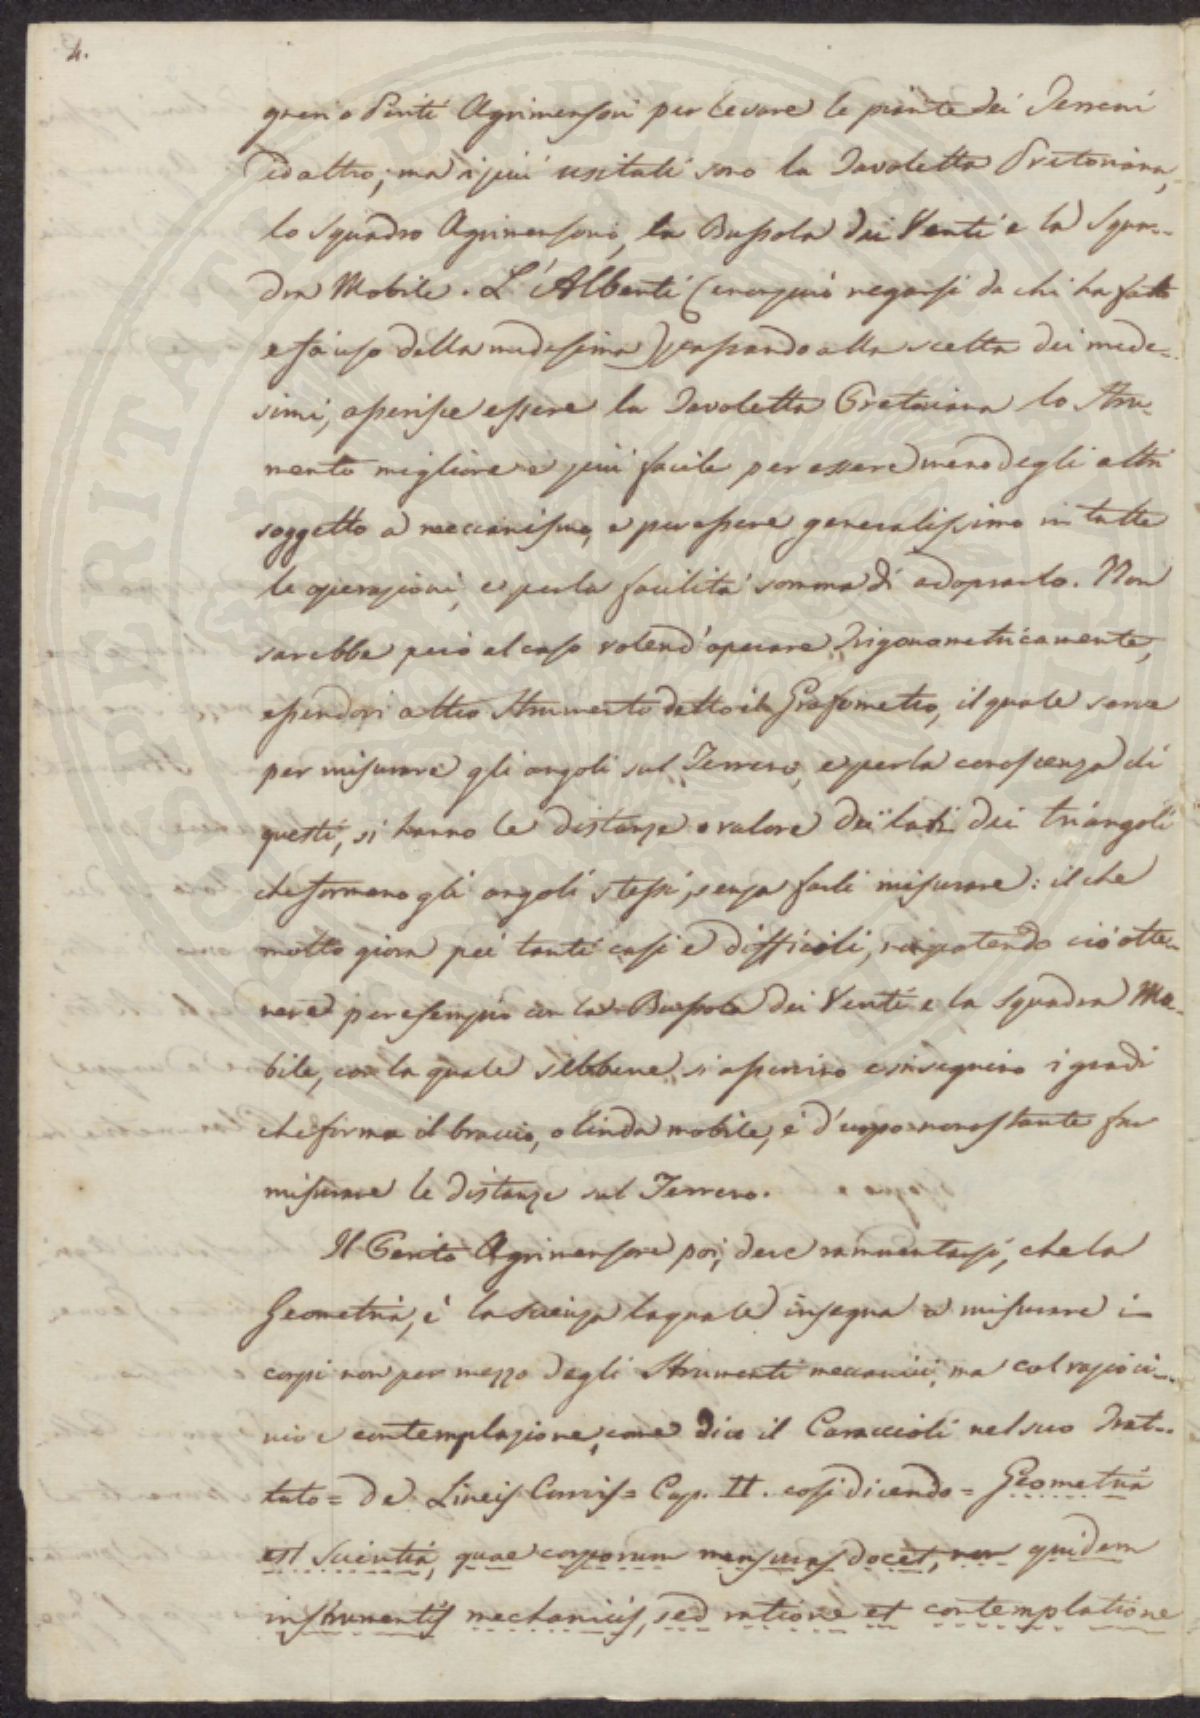 4.
Periti Agrimensori per levare le piante dei Terreni
ed altro; ma i più usitati sono la Tavoletta Pretoriana,
lo Squadro Agrimensorio, la Bussola dei Venti e la Squa-
dra Mobile. L'Alberti ( negarsi da chi ha fatto
e fà uso della medesima) passando alla scelta dei mede-
simi, asserisce essere la Tavoletta Pretoriana lo Stru-
mento migliore e più facile per essere meno degli altri
soggetto a meccanismo, e per essere generalissimo in tutte
le operazioni, e per la facilità somma di adoprarlo. Non
sarebbe però al caso volend'operare Trigonometricamente,
essendovi altro Strumento detto il Grafometro, il quale serve
per misurare gli angoli sul Terreno, e per la conoscenza di
questi, si hanno le distanze o valore dei lati dei triangoli
che formano gli angoli stessi, senza farli misurare: il che
molto giova pei tanti casi e difficili, non potendo ciò otte-
nere per esempio con la Bussola dei Venti e la Squadra Mo-
bile, con la quale sebbene si e i gradi
che forma il braccio, o linda mobile, è d'uopo nonostante far
misurare le distanze sul Terreno.
Il Perito Agrimensore poi, deve rammentarsi, che la
Geometria, è la scienza la quale insegna a misurare i
corpi non per mezzo degli Strumenti meccanici, ma col razioci-
nio e contemplazione, come dice il Caraccioli nel suo Trat-
tato = De Lineis Curvis = Cap. II. così dicendo = Geometria
est scientia, quae corporum mensuras docet, non quidem
instrumentis mechanicis, sed ratione et contemplatione